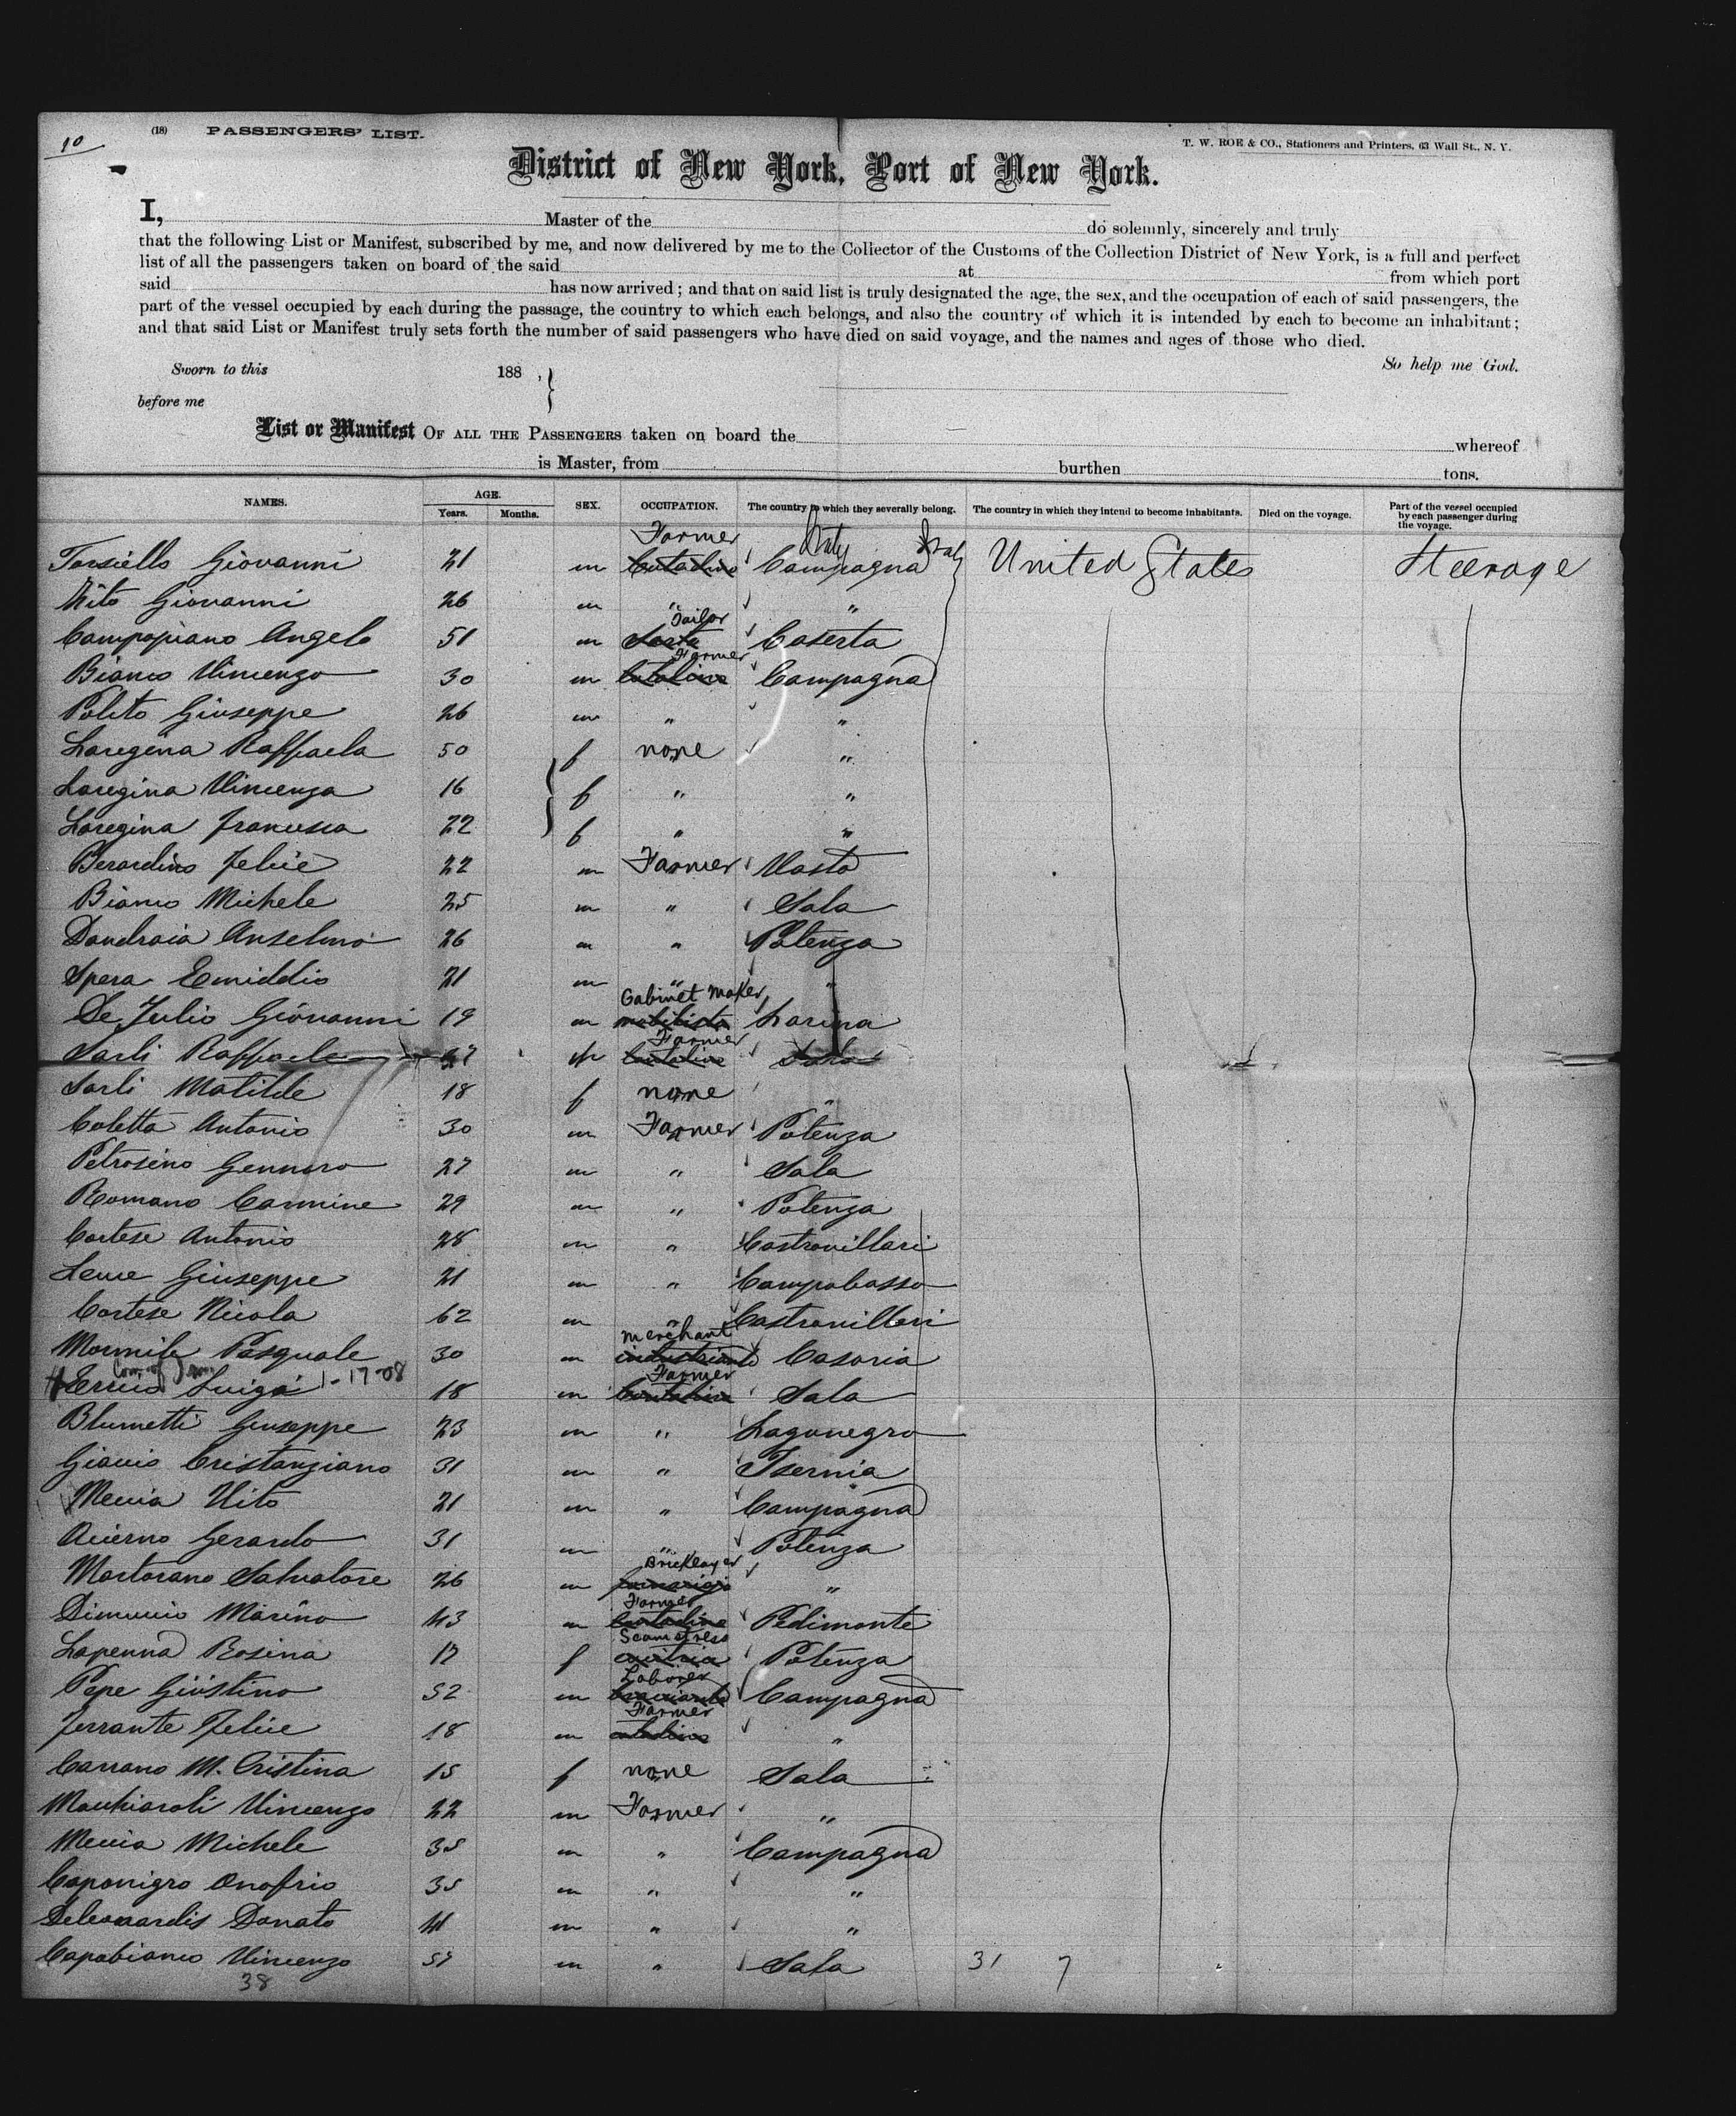 10
(18) PASSENGERS' LIST.
T. W. ROE & CO., Stationers and Printers, 63 Wall St., N. Y.
District of New York, Port of New York.
I, Master of the do solemnly, sincerely and truly
that the following List or Manifest, subscribed by me, and now delivered by me to the Collector of the Customs of the Collection District of New York, is a full and perfect
list of all the passengers taken on board of the said at from which port
said has now arrived; and that on said list is truly designated the age, the sex, and the occupation of each of said passengers, the
part of the vessel occupied by each during the passage, the country to which each belongs, and also the country of which it is intended by each to become an inhabitant;
and that said List or Manifest truly sets forth the number of said passengers who have died on said voyage, and the names and ages of those who died.
So help me God.
Sworn to this 188 ,
before me
List or Manifest OF ALL THE PASSENGERS taken on board the whereof
is Master, from burthen tons.
NAMES. AGE. Years. Months. SEX. OCCUPATION. The country to which they severally belong. The country in which they intend to become inhabitants. Died on the voyage. Part of the vessel occupied by each passenger during the voyage.
Farmer Italy Italy
Torsiello Giovanni 21 m Contadino Campagna United States Steerage
Vito Giovanni 26 m " "
Tailor
Campopiano Angelo 51 m Sarto Caserta
Farmer
Bianco Vincenzo 30 m Contadino Campagna
Polito Giuseppe 26 m " "
Laregina Raffaela 50 f none "
Laregina Vincenza 16 f " "
Laregina Francesca 22 f " "
Berardino Felice 22 m Farmer Vasto
Bianco Michele 25 m " Sala
Dandraia Anselmo 26 m " Potenza
Spera Emiddio 21 m " "
Cabinet Maker
De Julio Giovanni 19 m mobilista Larina
Farmer
Sarli Raffaele 27 m Contadino Sala
Sarli Matilde 18 f none "
Coletta Antonio 30 m Farmer Potenza
Petrosino Gennaro 27 m " Sala
Romano Carmine 29 m " Potenza
Cortese Antonio 28 m " Castrovillari
Leuce Giuseppe 21 m " Campobasso
Cortese Nicola 62 m " Castrovillari
merchant
Mormile Pasquale 30 m industriante Casoria
1-17-08 Farmer
Luigi 18 m Contadino Sala
Blumetti Giuseppe 23 m " Lagonegro
Cristanziano 31 m " Isernia
Meccia Vito 21 m " Campagna
Acierno Gerardo 31 m " Potenza
Bricklayer
Martorano Salvatore 26 m "
Farmer
Dimuccio Marino 43 m Contadino Pedimonte
Seamstress
Lapenna Rosina 17 f cucitrice Potenza
Laborer
Pepe Giustino 52 m bracciante Campagna
Farmer
Ferrante Felice 18 m contadino "
Carrano M. Cristina 15 f none Sala
Macchiaroli Vincenzo 22 m Farmer "
Meccia Michele 35 m " Campagna
Caponigro Onofrio 35 m " "
Deleonardis Donato 41 m " "
Capobianco Vincenzo 57 m " Sala 31 7
38